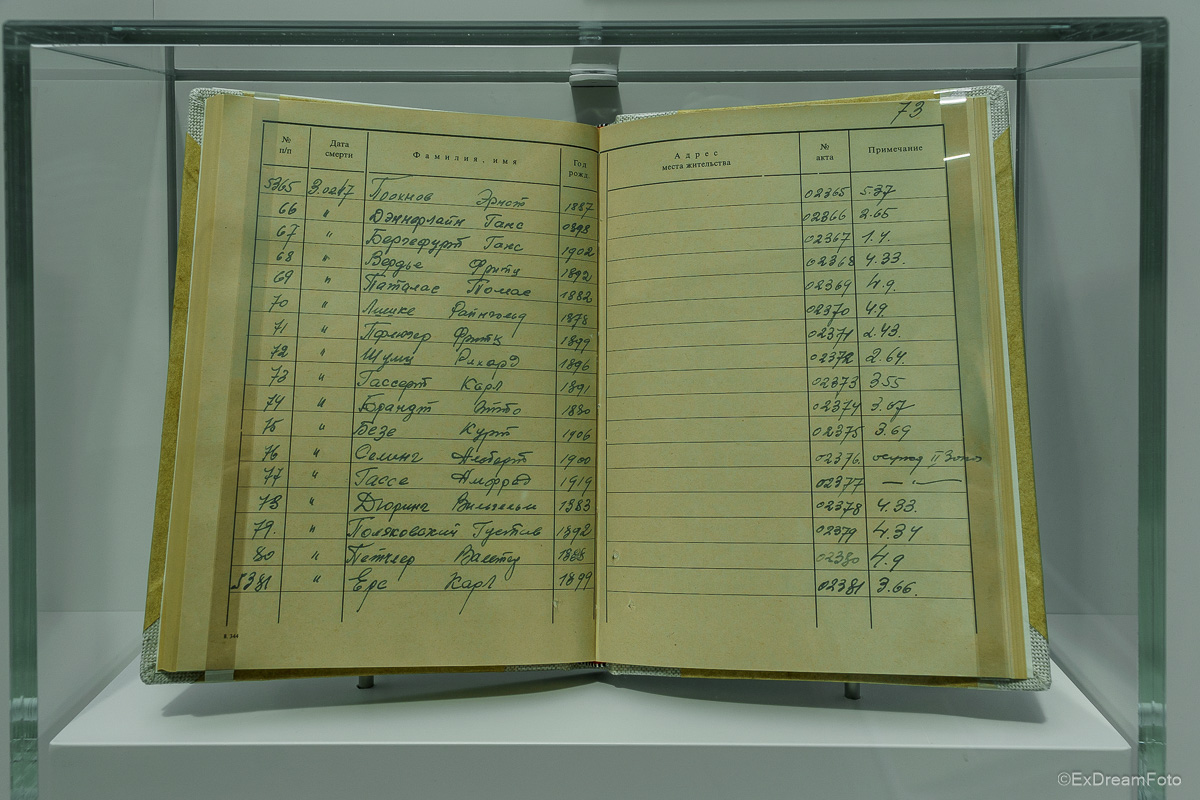 73
№ п/п Дата смерти Фамилия, имя Год рожд. Адрес места жительства № акта Примечание
5365 Эрнст 1887 02365 5.37
66 " Дэннерлайн Ганс 02366 2.65
67 " Бергефурт Ганс 1902 02367 1.4.
68 " Вердье Фритц 1892 02368 4.33.
69 " Паталас Томас 1882 02369 4.9.
70 " Лишке Райнгольд 1878 02370 4.9
71 " Фритц 1899 02371 2.43.
72 " Шулц Рихард 1896 02372 2.64.
73 " Гассерт Карл 1891 02373 3.55
74 " Брандт Отто 1880 02374 3.67
75 " Безе Курт 1906 02375 3.69
76 " Селинг Альберт 1900 02376 II
77 " Гассе Альфред 1919 02377 — " —
78 " Дюринг Вильгельм 1883 02378 4.33.
79. " Поляковский Густав 1892 02379 4.34
80 " Петчлер Вальтер 02380 4.9
5381 " Ерс Карл 1899 02381 3.66.
В 344
©ExDreamFoto